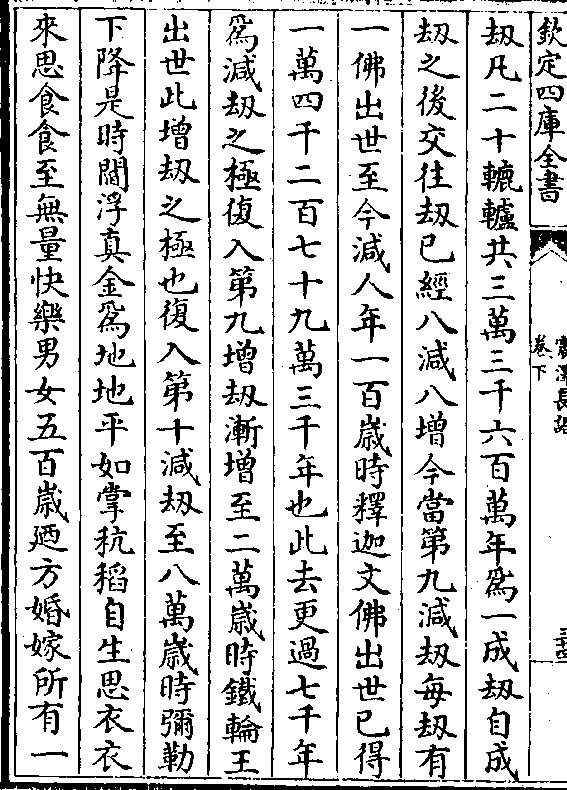 欽定四庫全書
震澤長語
卷下
劫凡二十轆轤共三萬三千六百萬年爲一成劫自成
劫之後交住劫已經八減八增今當第九減劫每劫有
一佛出世至今減人年一百歲時釋迦文佛出世已得
一萬四千二百七十九萬三千年也此去更過七千年
爲減劫之極復入第九增劫漸增至二萬歲時鐵輪王
出世此增劫之極也復入第十減劫至八萬歲時彌勒
下降是時閻浮真金爲地地平如掌秔稻自生思衣衣
來思食食至無量快樂男女五百歲廼方婚嫁所有一